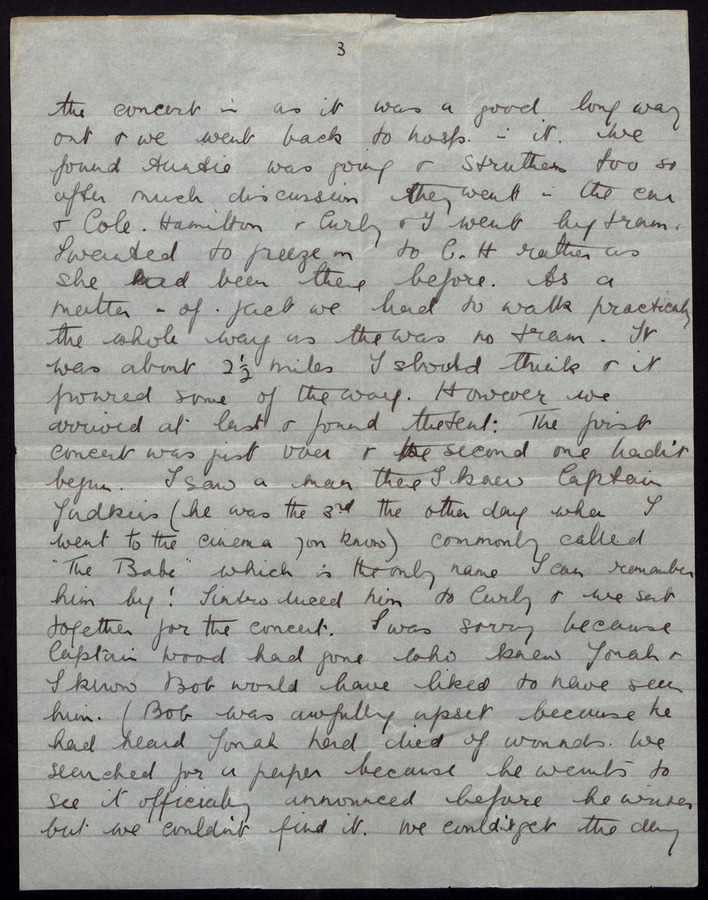 3
the concert in as it was a good long way
out & we went back to hosp. in it. We
found Auntie was going & Struthers too so
after much discussion they went in the car
& Cole. Hamilton & Curly & I went by tram.
I wanted to freeze on to C. H rather as
she had been there before. As a
matter - of - fact we had to walk practically
the whole way as there was no tram. It
was about 2½ miles I should think & it
poured some of the way. However we
arrived at last & found the tent: The first
concert was just over & the second one hadn't
begun. I saw a man there I knew Captain
Judkins (he was the 3rd the other day when I
went to the cinema you know) commonly called
"The Babe" which is the only name I can remember
him by! I introduced him to Curly & we sat
together for the concert. I was sorry because
Captain Wood had gone who knew Jonah &
I know Bob would have liked to have seen
him. (Bob was awfully upset because he
had heard Jonah had died of wounds. We
searched for a paper because he wants to
see it officially announced before he writes
but we couldn't find it. We couldn't get the day